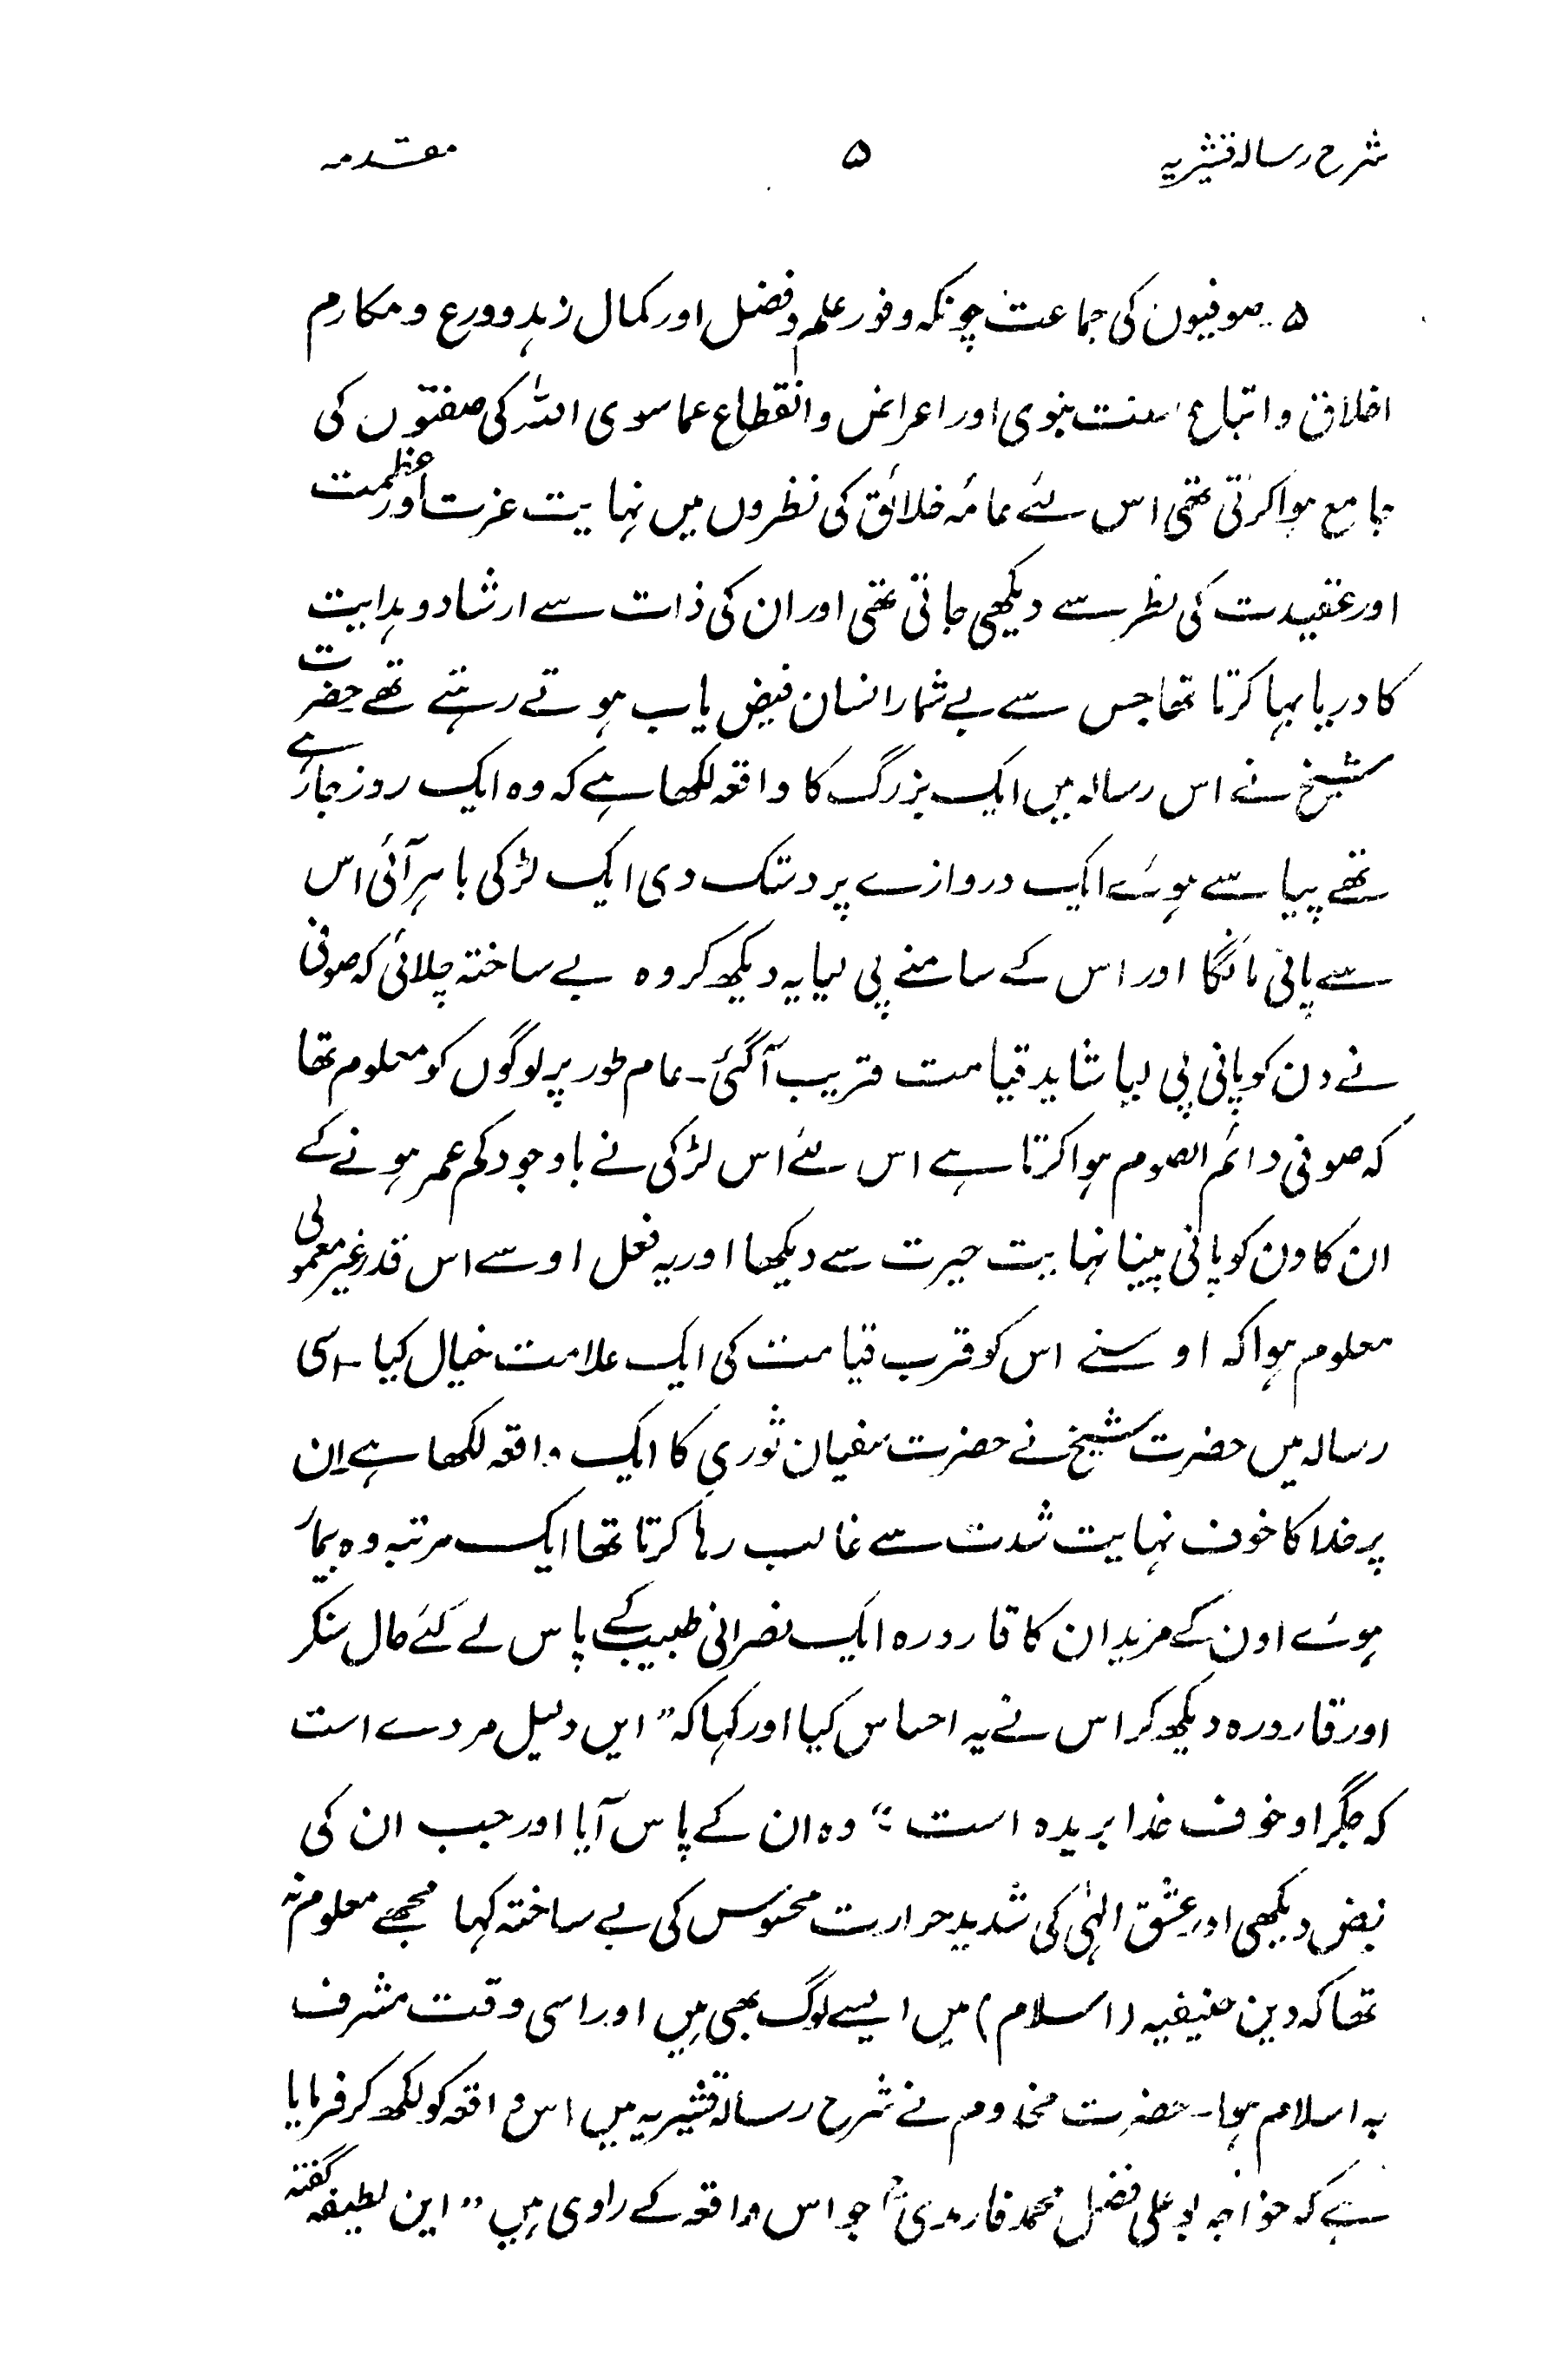 شرح رسالہ قشیریہ ۵ مقدمہ
۵۔ صوفیوں کی جماعت چونکہ وفور علم و فضل اور کمال زہد و ورع و مکارم
اخلاق و اتباع سنت نبوی اور اعراض و انقطاع عما سوی اللہ کی صفتوں کی
جامع ہوا کرتی تھی اس لئے عامۂ خلائق کی نظروں میں نہایت عزت اور عظمت
اور عقیدت کی نظر سے دیکھی جاتی تھی اور ان کی ذات سے ارشاد و ہدایت
کا دریا بہا کرتا تھا جس سے بے شمار انسان فیض یاب ہوتے رہتے تھے حضرت
شیخ نے اس رسالہ میں ایک بزرگ کا واقعہ لکھا ہے کہ وہ ایک روز جا رہے
تھے پیاسے ہوئے ایک دروازے پر دستک دی ایک لڑکی باہر آئی اس
سے پانی مانگا اور اس کے سامنے پی لیا یہ دیکھ کر وہ بے ساختہ چلائی کہ صوفی
نے دن کو پانی پی لیا شاید قیامت قریب آگئی۔ عام طور پر لوگوں کو معلوم تھا
کہ صوفی دائم الصوم ہوا کرتا ہے اس لئے اس لڑکی نے باوجود کم عمر ہونے کے
ان کا دن کو پانی پینا نہایت حیرت سے دیکھا اور یہ فعل اوسے اس قدر غیر معمولی
معلوم ہوا کہ اوسنے اس کو قرب قیامت کی ایک علامت خیال کیا۔ اسی
رسالہ میں حضرت شیخ نے حضرت سفیان ثوری کا ایک واقعہ لکھا ہے ان
پر خدا کا خوف نہایت شدت سے غالب رہا کرتا تھا ایک مرتبہ وہ بیمار
ہوئے اون کے مرید ان کا قارورہ ایک نصرانی طبیب کے پاس لے گئے حال سنکر
اور قارورہ دیکھ کر اس نے یہ احساس کیا اور کہا کہ ”ایں دلیل مردے است
کہ جگر او خوف خدا بریدہ است“ وہ ان کے پاس آیا اور جب ان کی
نبض دیکھی اور عشق الہٰی کی شدید حرارت محسوس کی بے ساختہ کہا مجھے معلوم نہ
تھا کہ دین حنیفیہ (اسلام) میں ایسے لوگ بھی ہیں اور اسی وقت مشرف
بہ اسلام ہوا۔ حضرت مخدوم نے شرح رسالہ قشیریہ میں اس واقعہ کو لکھ کر فرمایا
ہے کہ خواجہ بو علی فضل محمد فارمدیؒ جو اس واقعہ کے راوی ہیں ”این لطیفہ گفتہ